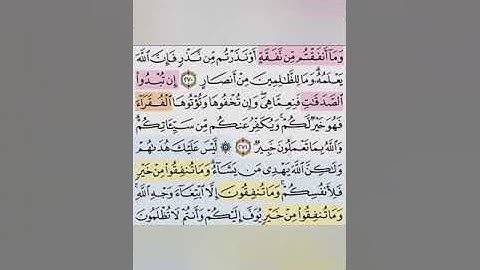 وَمَآ أَنفَقْتُم مِّن نَّفَقَةٍ أَوْ نَذَرْتُم مِّن نَّذْرٍ فَإِنَّ ٱللَّهَ
يَعْلَمُهُۥ وَمَا لِلظَّٰلِمِينَ مِنْ أَنصَارٍ ٢٧٠ إِن تُبْدُوا۟
ٱلصَّدَقَٰتِ فَنِعِمَّا هِىَ وَإِن تُخْفُوهَا وَتُؤْتُوهَا ٱلْفُقَرَآءَ
فَهُوَ خَيْرٌ لَّكُمْ وَيُكَفِّرُ عَنكُم مِّن سَيِّـَٔاتِكُمْ
وَٱللَّهُ بِمَا تَعْمَلُونَ خَبِيرٌ ٢٧١ ۞ لَّيْسَ عَلَيْكَ هُدَىٰهُمْ
وَلَٰكِنَّ ٱللَّهَ يَهْدِى مَن يَشَآءُ وَمَا تُنفِقُوا۟ مِنْ خَيْرٍ
فَلِأَنفُسِكُمْ وَمَا تُنفِقُونَ إِلَّا ٱبْتِغَآءَ وَجْهِ ٱللَّهِ
وَمَا تُنفِقُوا۟ مِنْ خَيْرٍ يُوَفَّ إِلَيْكُمْ وَأَنتُمْ لَا تُظْلَمُونَ